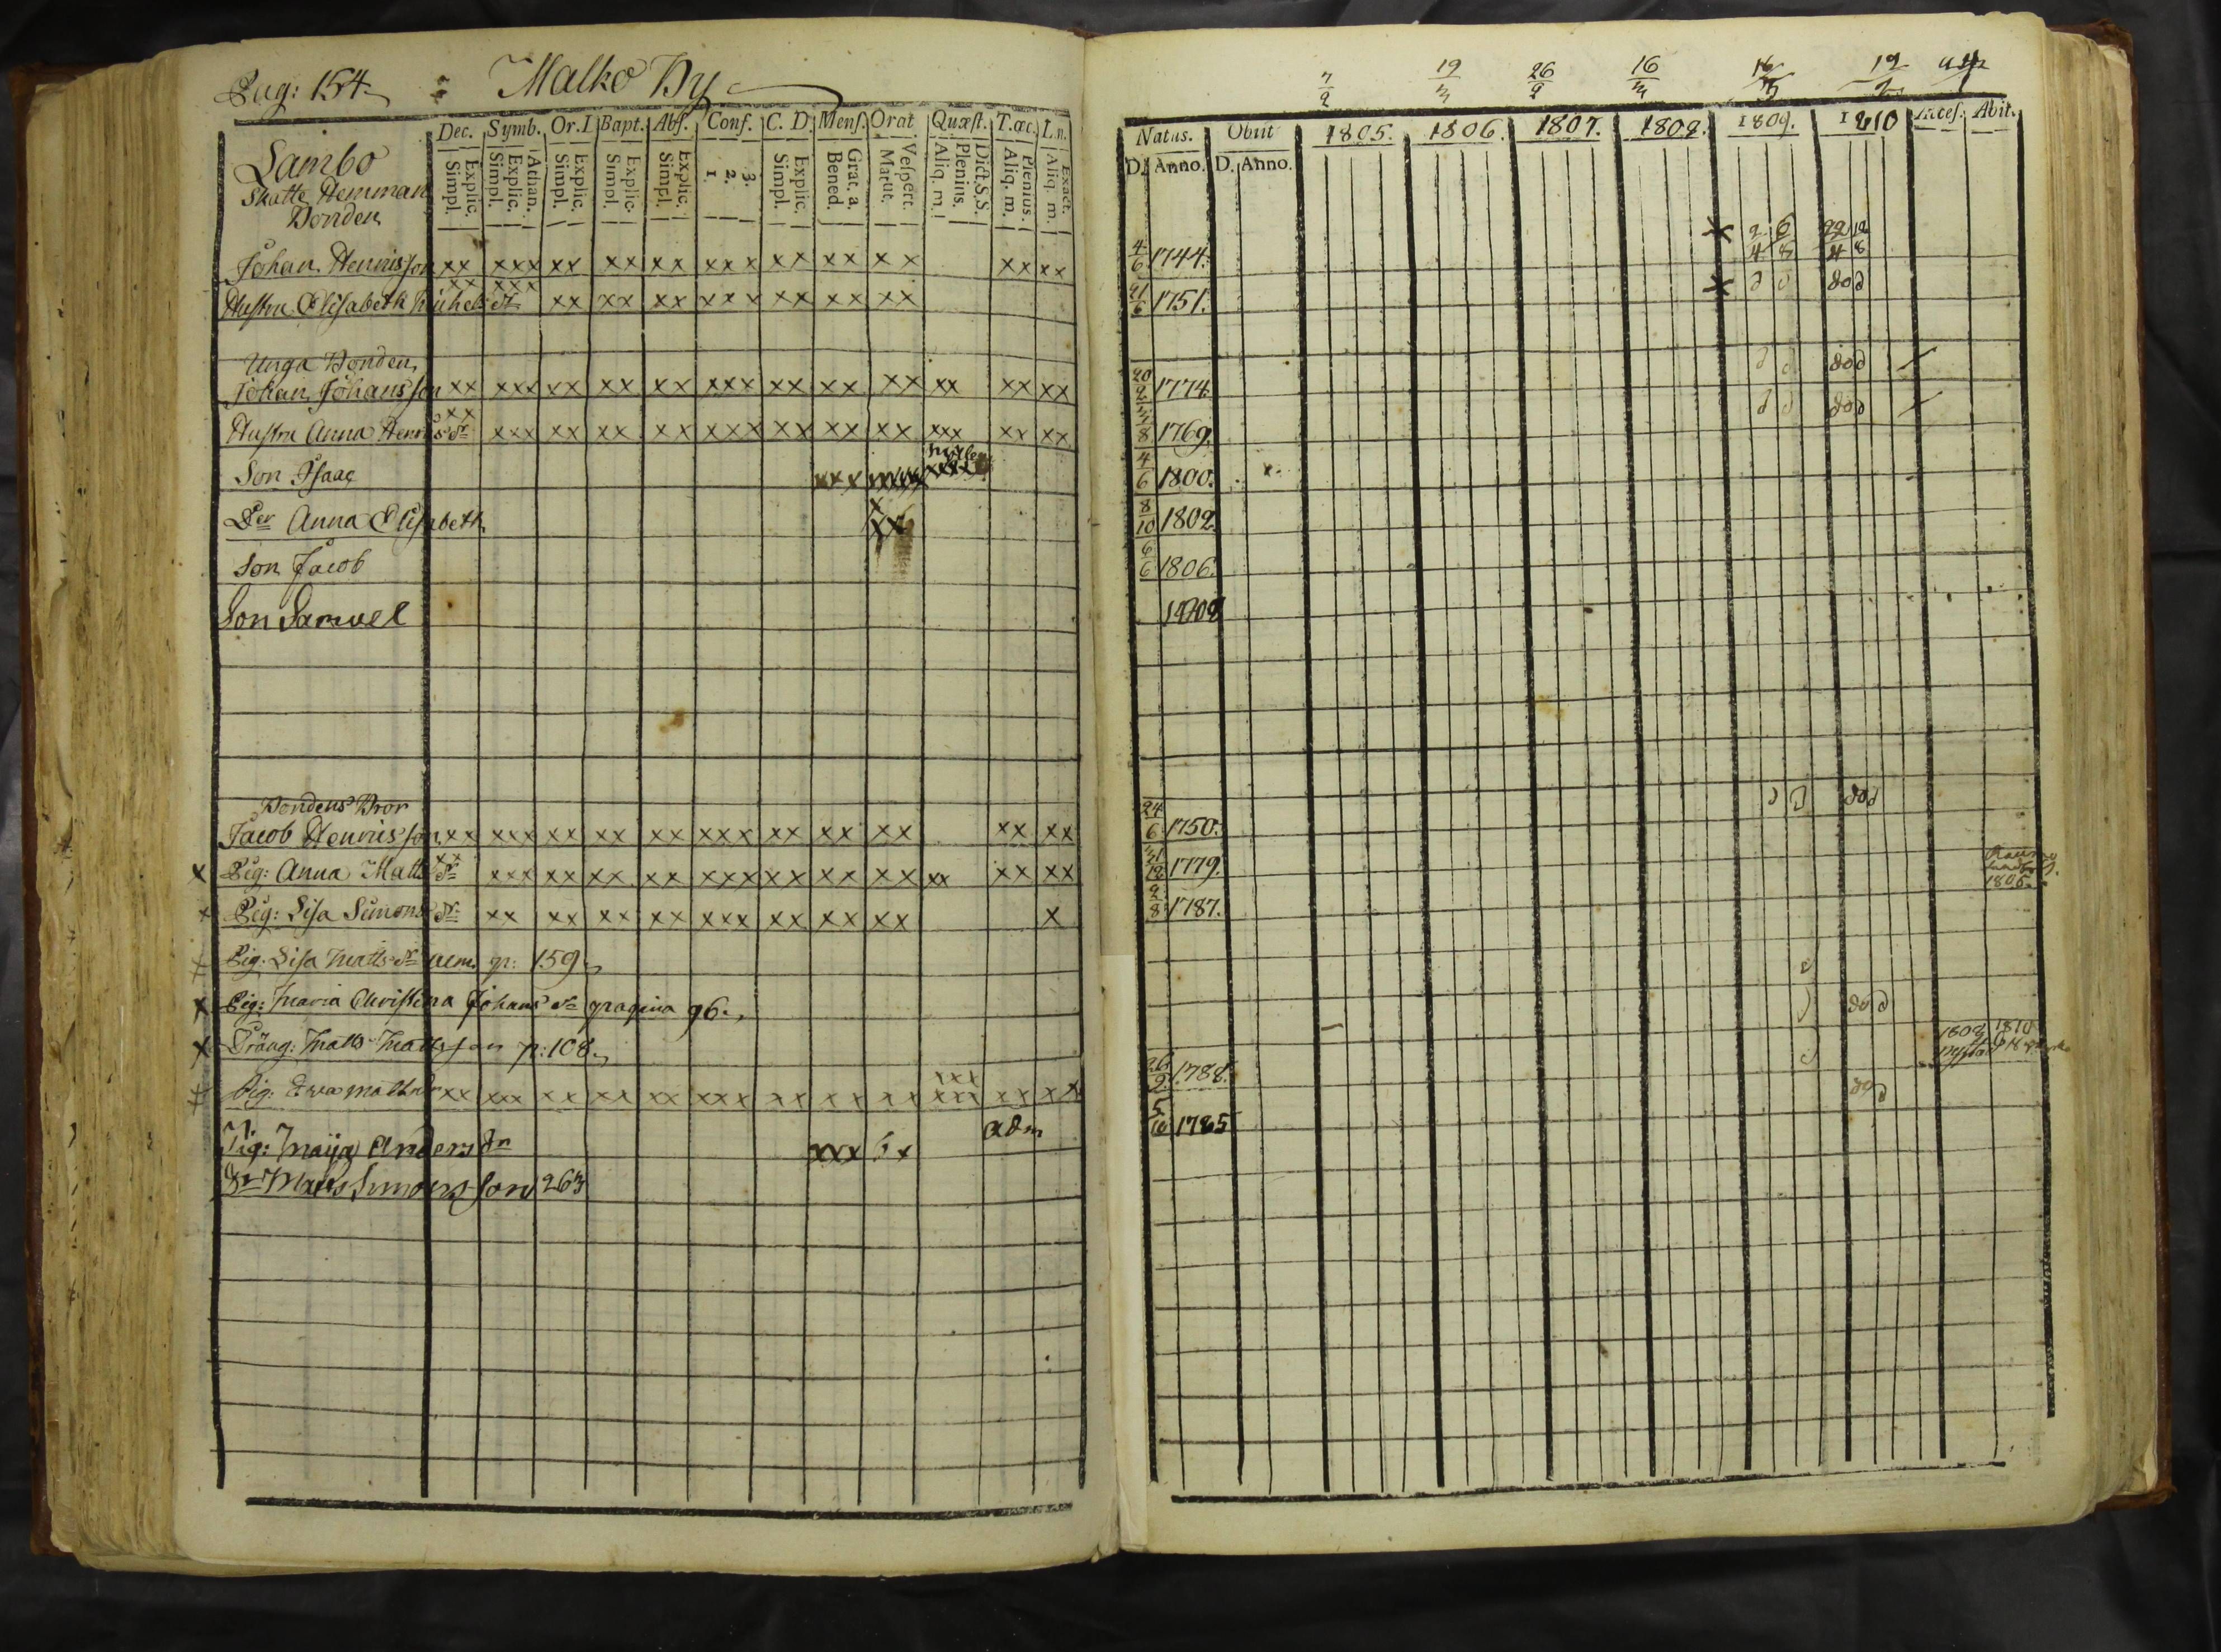 Pag: 154. Malko By
Dec. Symb. Or.D Bapt. Abs. Conf. C. D. Mens. Orat. Quæst. T.œc. L.n.
Lambo
Skatte Hemman
Bonden
Explic. Simpl.
Athan. Explic. Simpl.
Explic. Simpl.
Explic. Simpl.
Explic. Simpl.
3. 2. 1.
Explic. Simpl.
Grat. a. Bened.
Vespert. Matut.
Dict.S.S. Plenius. Aliq. m.
Plenius. Aliq. m.
Exact. Aliq. m.
Johan Henrisson xx xxx xx xx xx xxx xx xx xx xx xx
xx xxx
Hustru Elisabeth Michels dr xx xx xx xxx xx xx xx
Unga Bonden
Johan Johansson xx xxx xx xx xx xxx xx xx xx xx xx xx
xx
Hustru Anna Henrics dr xxx xx xx xx xxx xx xx xx xxx xx xx
Son Isaac xxx
Der Anna Elisabeth
x
xx
Son Jacob
Son Samuel
Bondens Bror
Jacob Henricsson xx xxx xx xx xx xxx xx xx xx xx xx
xx
x Pig: Anna Matts dr xxx xx xx xx xxx xx xx xx xx xx xx
x Pig: Lisa Simons dr xx xx xx xx xxx xx xx xx x
Pig: Lisa Matts dr p: 159.
x Pig: Maria Christina Johans dr pagina 96.
x Dräng: Matts Mattsson p: 108.
xxx
Pig: Eva Matts dr xx xxx xx xx xx xxx xx xx xx xxx xx xx
adm
Pig: Maija Anders dr xxx 6x
Dr Matts Simonsson 263
7/2 19/3 26/2 16/3 16/3 19/2
Natus. Obiit 1805. 1806. 1807. 1808. 1809. 1810 Acces. Abit.
D. Anno. D. Anno.
4/6 1744. x 2/4 6/8 22/4 12/8
21/6 1751. x d d dod
20/2 1774. d d dod
3/8 1769. d d dod
4/6 1800.
8/10 1802.
6/6 1806.
1808
24/6 1750. dod
21/12 1779. 1805.
2/8 1787.
dod
1808 1810
26/9 1788.
dod
5/10 1785